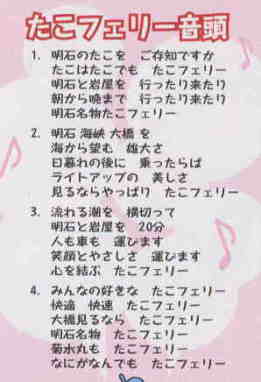 たこフェリー音頭
1. 明石のたこを ご存知ですか
たこはたこでも たこフェリー
明石と岩屋を 行ったり来たり
朝から晩まで 行ったり来たり
明石名物たこフェリー
2. 明石 海峡 大橋 を
海から望む 雄大さ
日暮れの後に 乗ったらば
ライトアップの 美しさ
見るならやっぱり たこフェリー
3. 流れる潮を 横切って
明石と岩屋を 20分
人も車も 運びます
笑顔とやさしさ 運びます
心を結ぶ たこフェリー
4. みんなの好きな たこフェリー
快適 快速 たこフェリー
大橋見るなら たこフェリー
明石名物 たこフェリー
菊水丸も たこフェリー
なにがなんでも たこフェリー